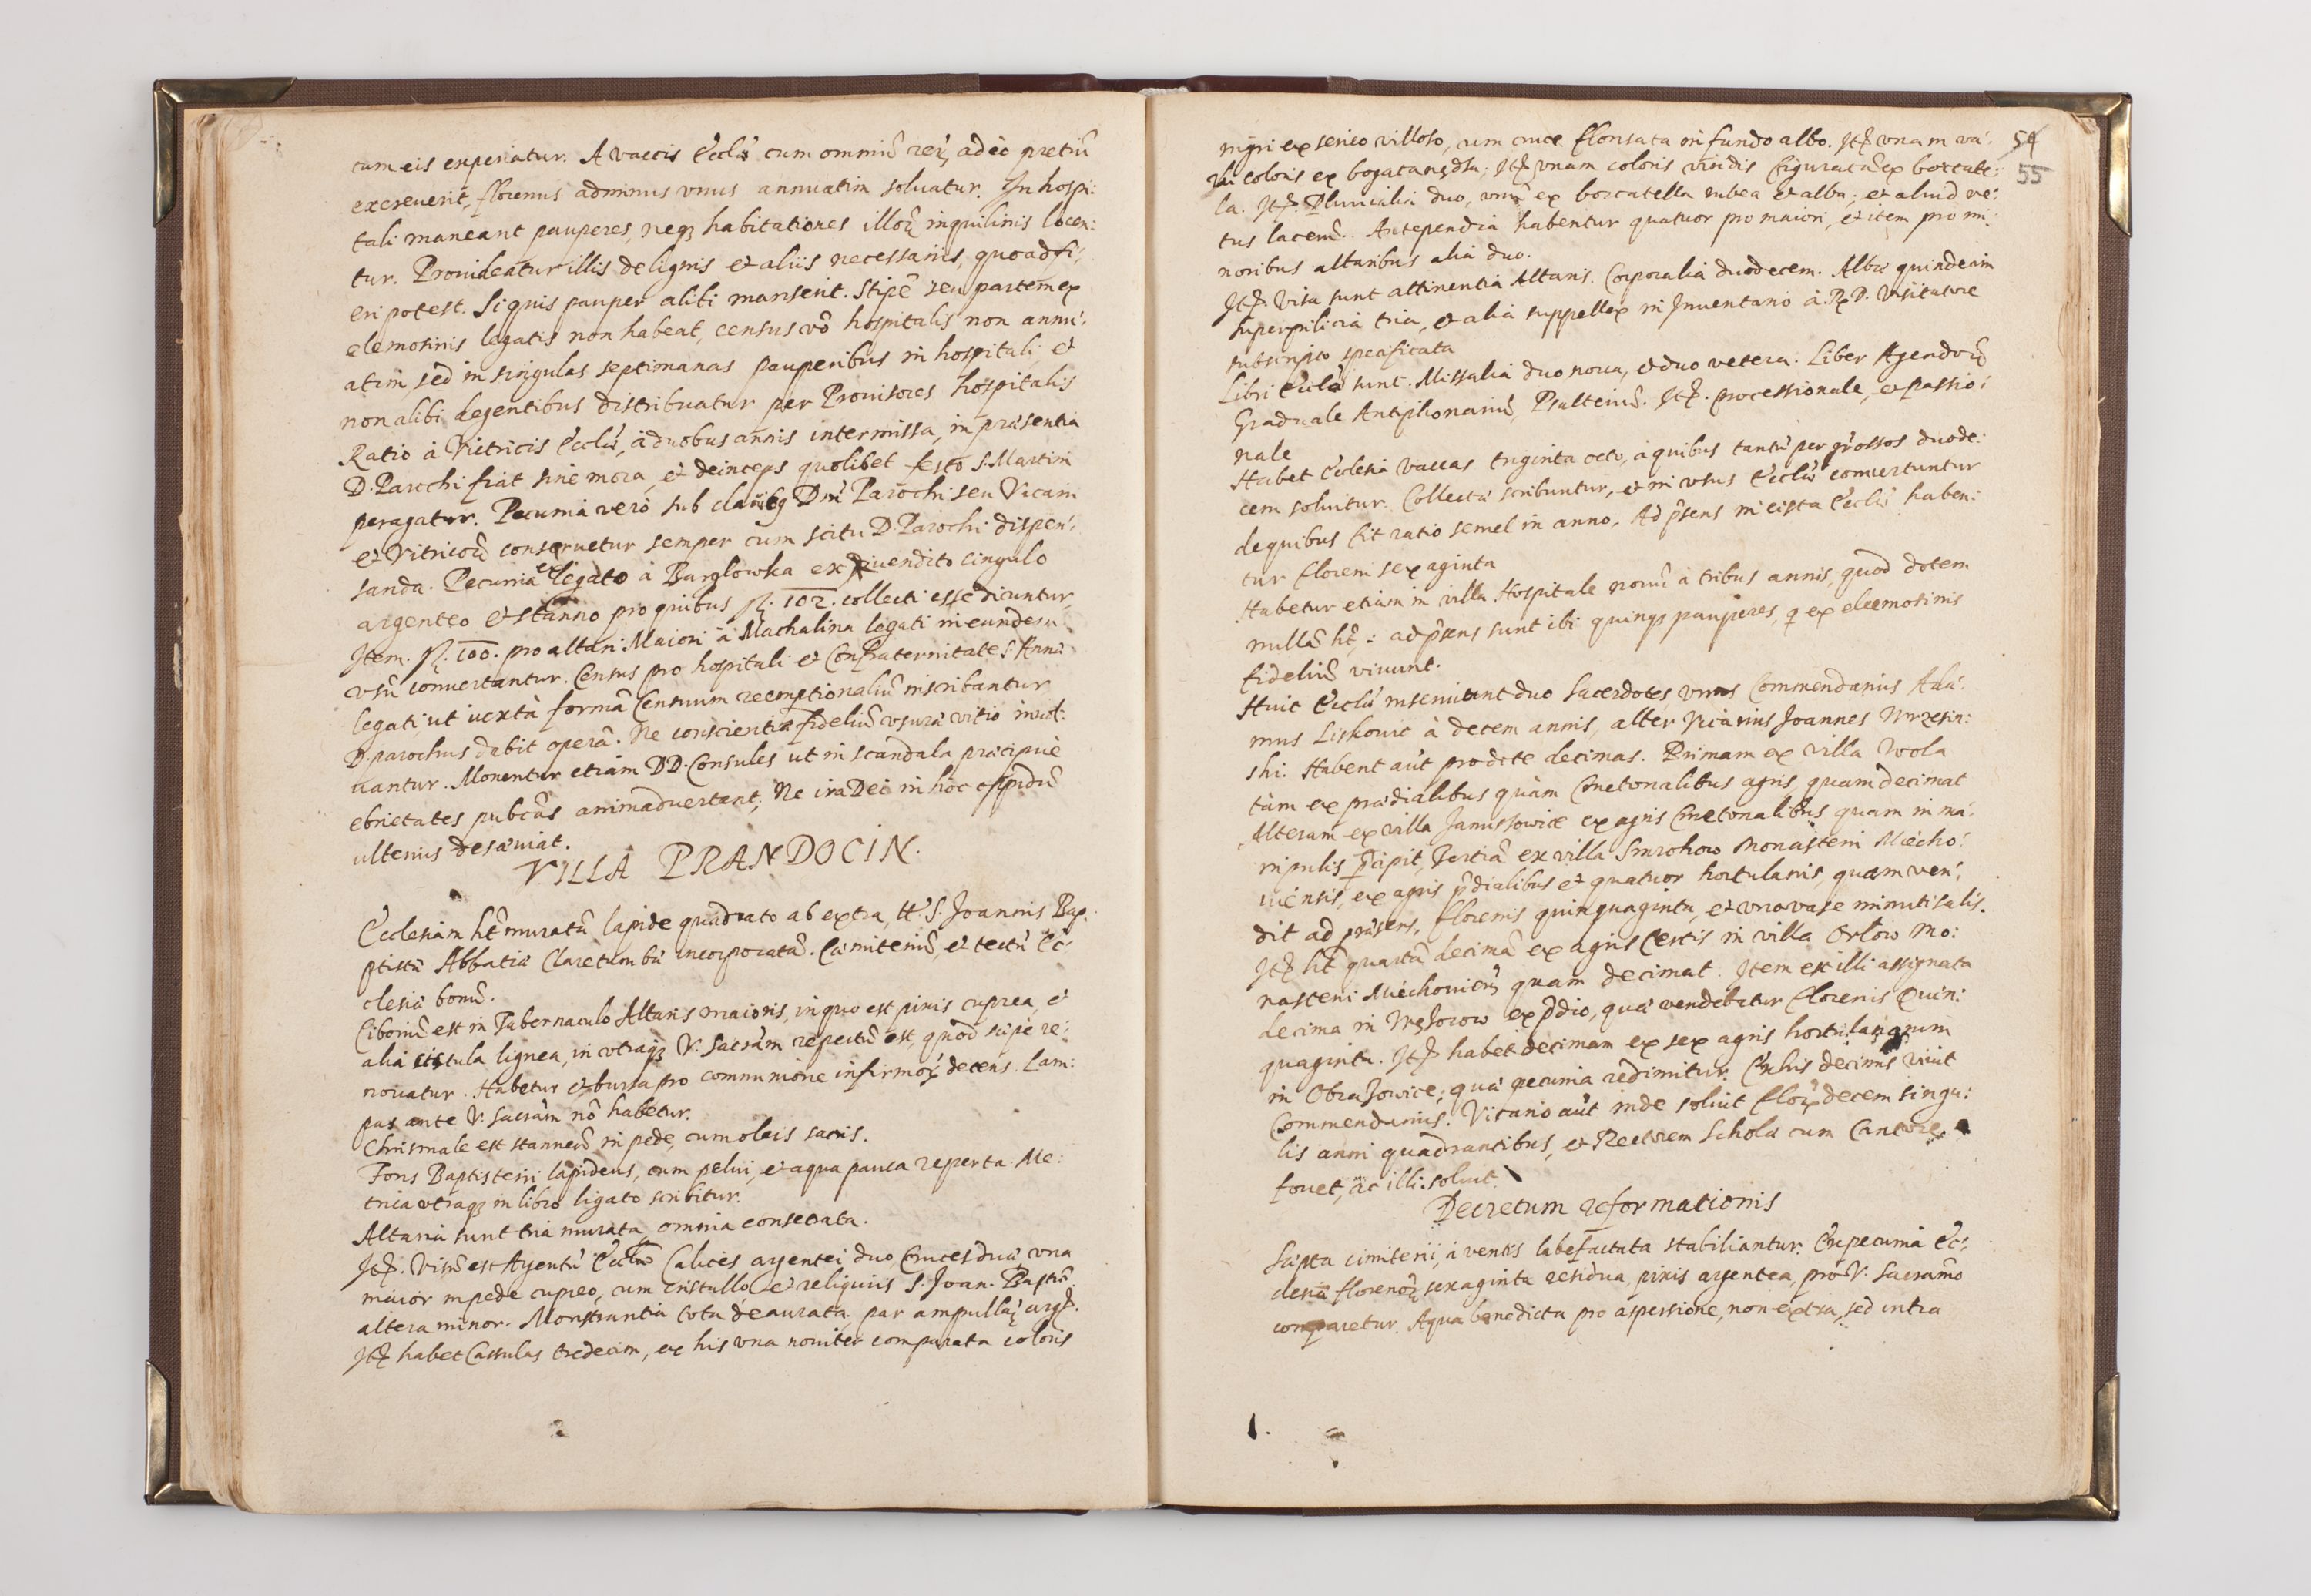 cum eis experiatur. A vaccis Eccliæ cum omniũ rerũ adeò pretiũ
excreuerit, florenus adminus vnus annuatim soluatur. In hospi:
tali maneant pauperes, neq; habitationes illorũ inquilinis locen:
tur. Prouideatur illis de lignis et aliis necessariis, quoad fi:
eri potest. Si quis pauper alibi manserit. Stipẽ seu partem ex
elemosinis legatis non habeat, census vò hospitalis non annu:
atim, sed in singulas septimanas pauperibus in hospitali et
non alibi degentibus distribuatur per Prouisores hospitalis
Ratio à Vitricis Eccliæ, à duobus annis intermissa, in præsentia
D. Parochi fiat sine mora, et deinceps quolibet festo S. Martini
peragatur. Pecunia verò sub clauibq Dni Parochi seu Vicarii
et Vitricorũ conseruetur semper cum scitu D. Parochi dispen:
sanda. Pecunia ex legato à Barglowka ex diuendito cingulo
argenteo et stanno pro quibus fl. 102. collecti esse dicuntur,
Item. fl. 100. pro altari Maiori à Machalina legati in eundem
vsũ conuertantur. Census pro hospitali et Confraternitate S. Annæ
legati, ut iuxtà formã Censuum reemptionaliũ inscribantur
D. parochus dabit operã. Ne conscientiæ fideliũ vsuræ vitio inuol:
uantur. Monentur etiam DD. Consules ut in scandala præcipuè
ebrietates pubcãs animaduertant; Ne ira Dei in hoc oppidũ
ulterius desæuiat.
VILLA PRANDOCIN.
Ecclesiam hẽt muratã lapide quadrato ab extra, tt. S. Joannis Bap:
ptistæ Abbatiæ Claretumbæ incorporatã. Cæmiteriũ, et tectũ Ec:
clesiæ bonũ.
Ciboriũ est in Tabernaculo Altaris maioris, in quo est pixis cuprea, et
alia cistula lignea, in vtraq; V. Sacram̃ repertũ est, quod sæpe re:
nouatur. Habetur et bursa pro communione infirmorũ decens. Lam:
pas ante V. Sacram̃ nõ habetur.
Chrismale est stanneũ in pede, cum oleis sacris.
Fons Baptisterii lapideus, cum pelui, et aqua pauca reperta. Me:
trica vtraq; in libro ligato scribitur.
Altaria sunt tria murata, omnia consecrata.
Itẽ. Visũ est Argentũ Eccliæ Calices argentei duo, Cruces duæ, vna
maior in pede cupreo, cum cristallo et reliquiis S. Joan. Baptæ
altera minor. Monstrantia tota deaurata, par ampullarũ argẽ.
Itẽ habet Cassulas tredecim, ex his vna nouiter comparata coloris
54
55
nigri ex serico villoso, cum cruce florisata in fundo albo. Itẽ vnam va:
rii coloris ex bogatansdsu; Itẽ vnam coloris viridis figuratã ex boccate:
la. Itẽ. Pluuialia duo, vnũ ex boccatella rubea et alba; et aliud ve:
tus lacerũ. Antependia habentur quatuor pro maiori, et item pro mi:
noribus altaribus alia duo.
Itẽ. Visa sunt attinentia Altaris. Corporalia duodecem. Albæ quindecim
Superpilicia tria, et alia suppellex in Inuentario à R. D. Visitatore
subscripto specificata
Libri Eccliæ sunt. Missalia duo noua, et duo vetera. Liber Agendorũ
Graduale Antiphonariũ, Psalteriũ. Itẽ. processionale, et passio:
nale
Habet Ecclesia vaccas triginta octo, à quibus tantũ per grossos duode:
cem soluitur. Collecta scribuntur, et in vsus Eccliæ conuertuntur
de quibus fit ratio semel in anno. Ad p̃sens in cista Eccliæ haben:
tur floreni sexaginta
Habetur etiam in villa Hospitale nouũ à tribus annis, quod dotem
nullã hẽt: ad p̃sens sunt ibi quinq; pauperes, q̃ ex eleemosinis
fideliũ viuunt.
Huic Eccliæ inseruiunt duo Sacerdotes, vnus Commendarius Ada:
mus Liskouic à decem annis, alter Vicarius Joannes Wrzesin:
ski. Habent aũt pro dote decimas. Primam ex villa Wola
tàm ex prædialibus quàm Cmetonalibus agris, quam decimat
Alteram ex villa Janussowice ex agris Cmetonalibus quam in ma:
nipulis p̃cipit, Tertiã ex villa Smrokow Monasterii Miecho:
uiensis, ex agris p̃dialibus et quatuor hortulanis, quam ven:
dit ad præsens, florenis quinquaginta, et vno vase minuti salis.
Itẽ hẽt quartã decimã ex agris certis in villa Orłow Mo:
nasterii Miechouieñ quam decimat. Item est illi assignata
decima in Węsorow ex p̃dio, quæ vendebatur florenis Quin:
quaginta. Itẽ habet decimam ex sex agris hortulanorum
in Obrasowice; quæ pecunia redimitur. Ex his decimis viuit
Commendarius. Vicario aũt inde soluit florẽ decem singu:
lis anni quadrantibus, et Rectorem Scholæ cum Cantore
fouet, ac illi soluit.
Decretum reformationis
Sæpta cimiterii, à ventis labefactata stabiliantur. Ex pecunia Ec:
clesiæ florenorũ sexaginta residua, pixis argentea, pro V. Sacramẽto
comparetur. Aqua benedicta pro aspersione, non extra, sed intra